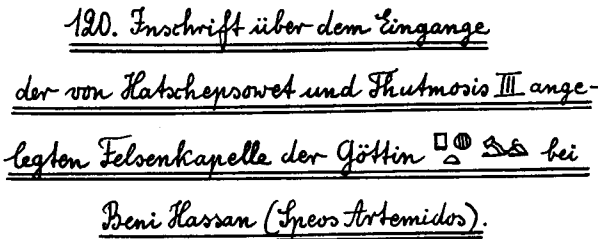 120. Inschrift über dem Eingange
der von Hatschepsowet und Thutmosis III ange-
legten Felsenkapelle der Göttin 𓊪𓐍𓏏 bei
Beni Hassan (Speos Artemidos).